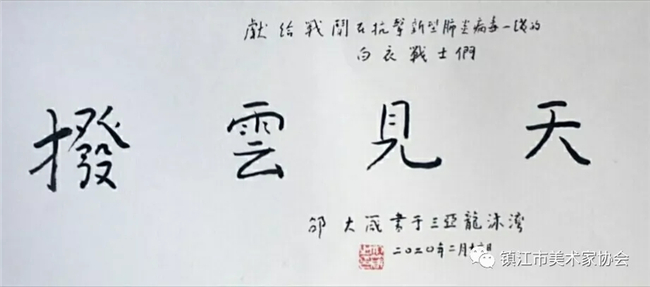 獻給戰鬪在抗擊新型肺炎病毒一線的
白衣戰士們
撥雲見天
邵大箴書于三亞龍沐灣
二〇二〇年二月
镇江市美术家协会